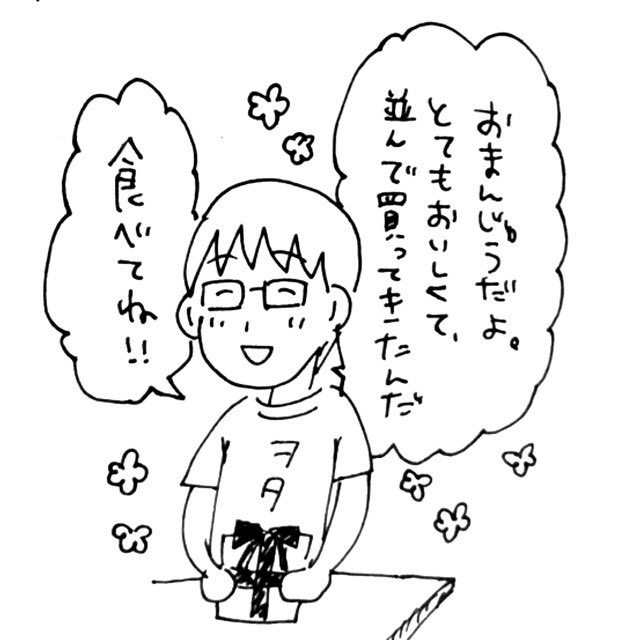 おまんじゅうだよ。
とてもおいしくて、
並んで買ってきたんだ
食べてね!!
ヲタ